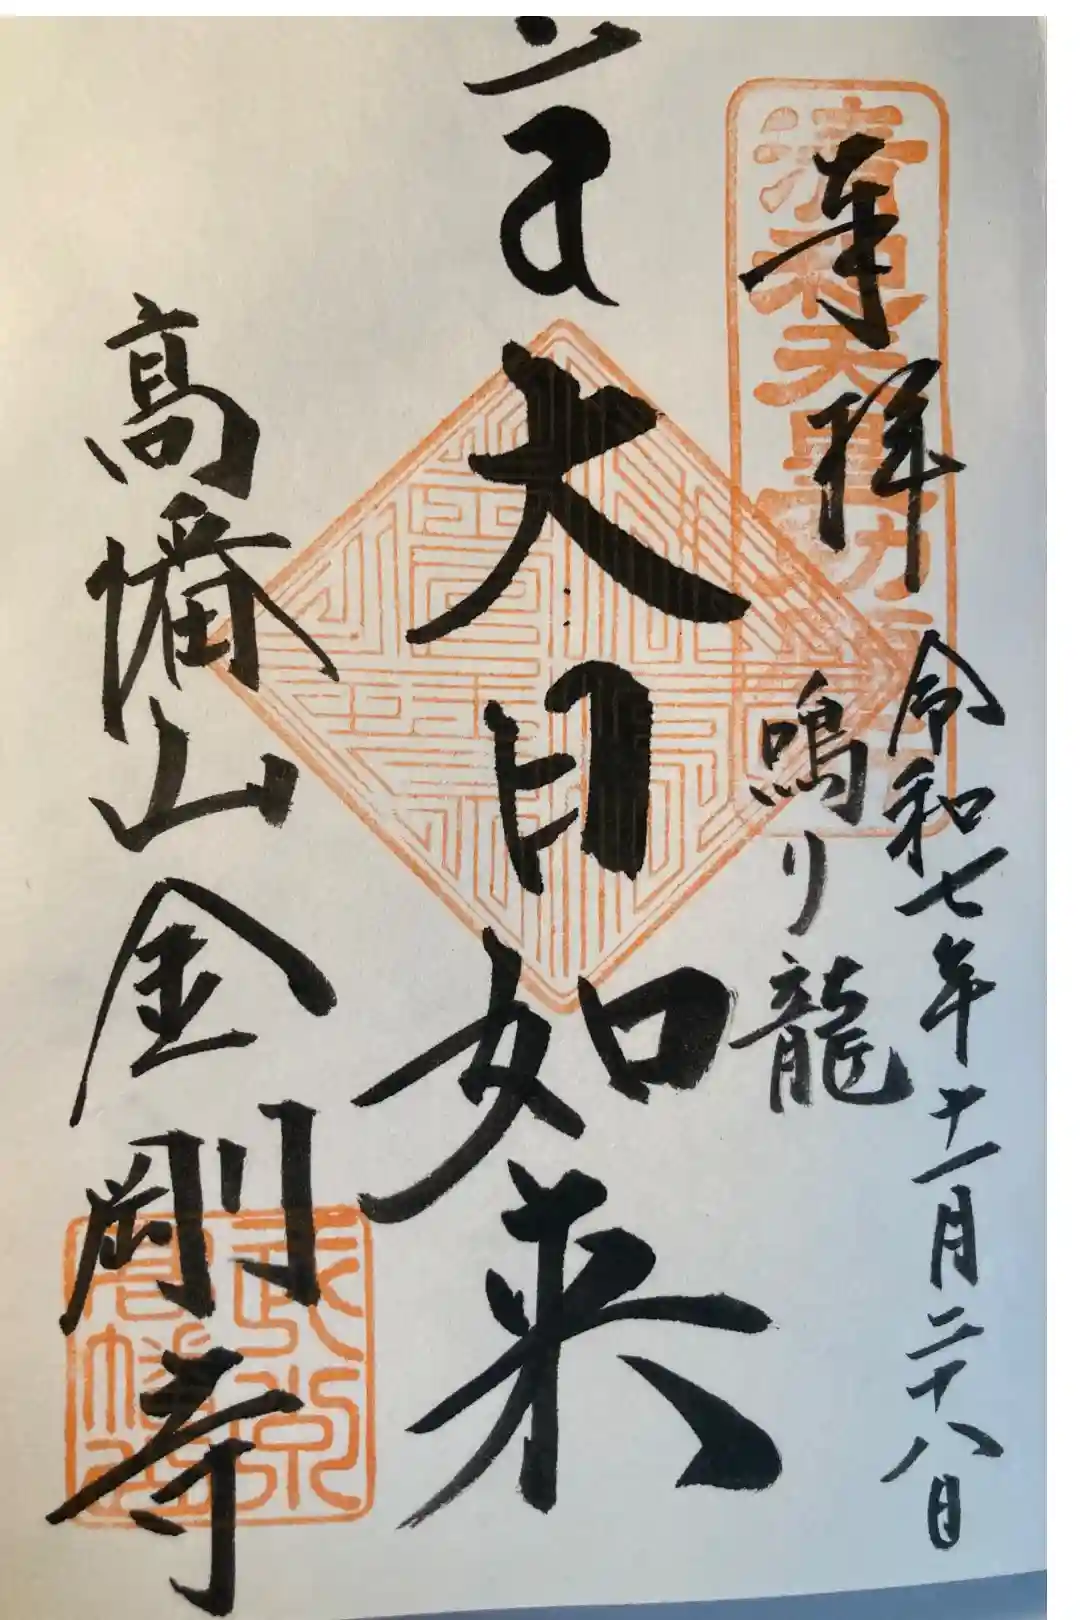 奉拝
令和七年十一月二十八日
鳴り龍
大日如来
高幡山金剛寺
清和天皇